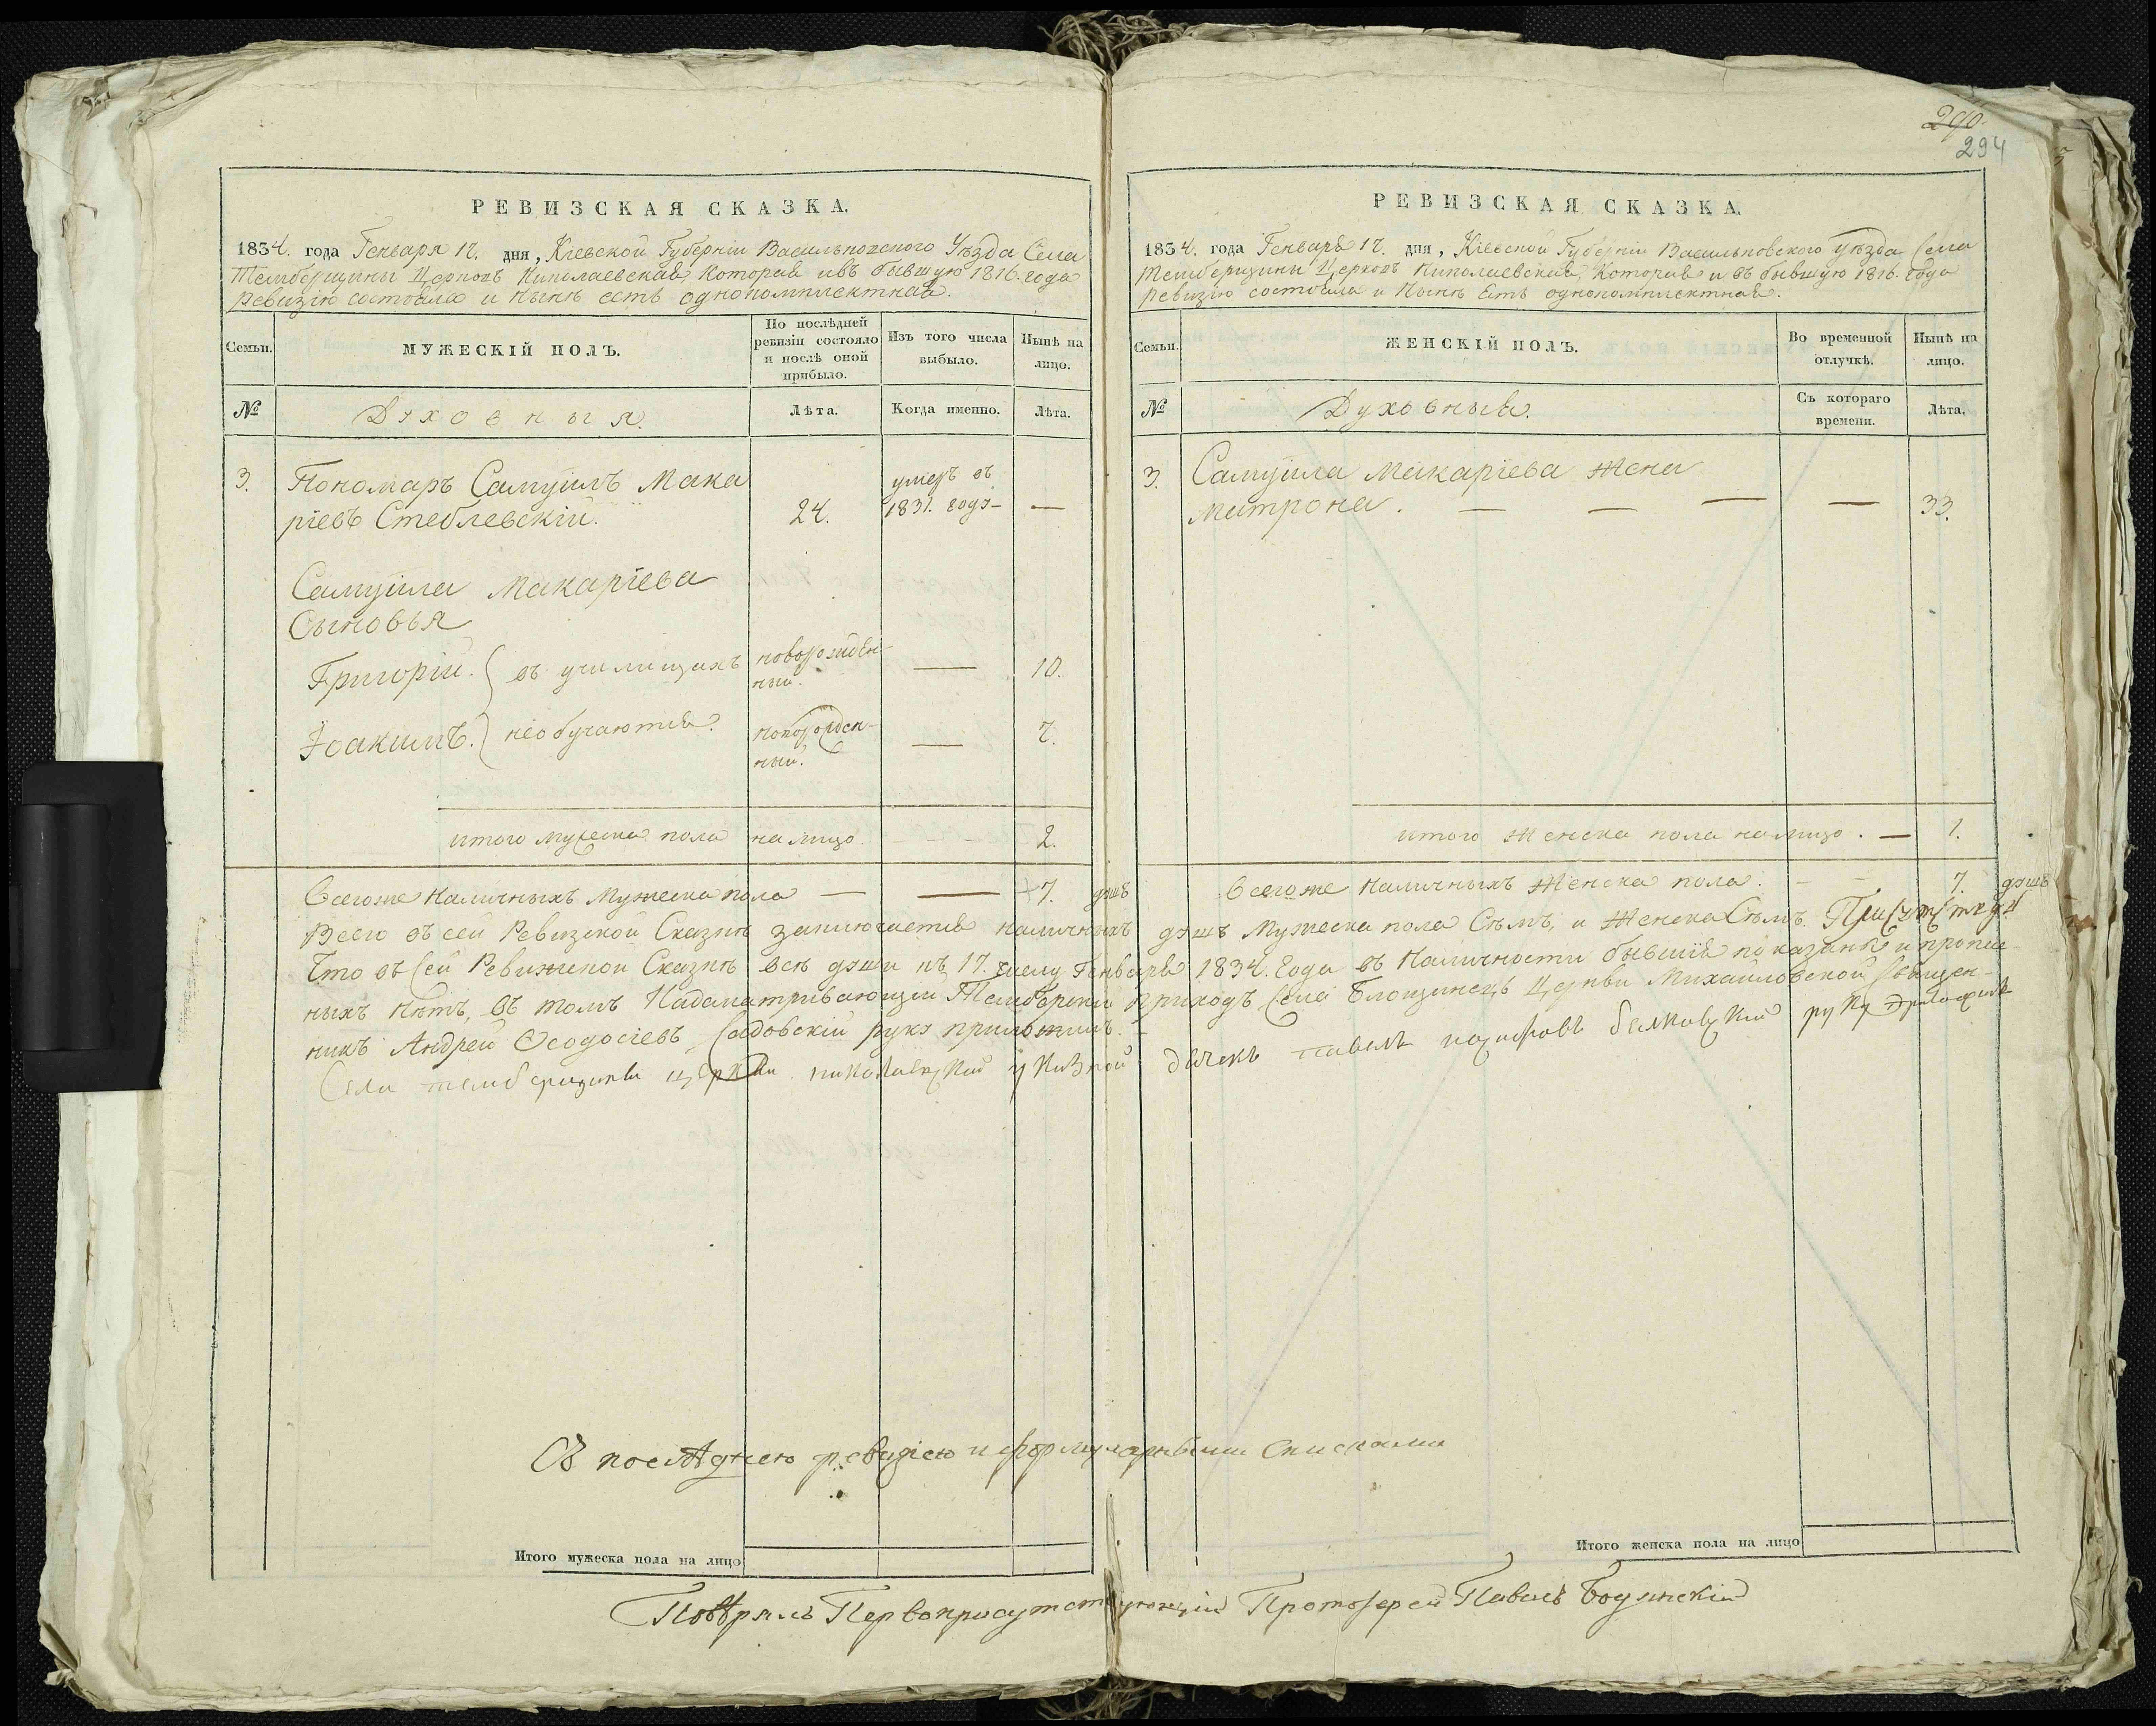 290.
294
РЕВИЗСКАЯ СКАЗКА.
1834. года Генваря 17. дня, Кіевской Губерніи Васильковского Уѣзда Села
Темберщины Церковь Николаевская, которая ивъ бывшую 1816. года
Ревизію состояла и нынѣ есть однокомплектная.
Семьи.
МУЖЕСКІЙ ПОЛЪ.
По послѣдней ревизіи состояло и послѣ оной прибыло.
Изъ того числа выбыло.
Нынѣ на лицо.
№
Духовныя.
Лѣта.
Когда именно.
Лѣта.
3. Пономаръ Самуилъ Мака
ріевъ Стеблевскій. 24. умеръ въ 1831. году — —
Самуила Макаріева
Сыновья
Григорій. въ училищахъ новорожденный. — 10.
Іоакимъ. необучаются. новорожденный. — 7.
итого мужеска пола на лицо 2.
Всегоже наличныхъ мужеска пола — — 7. душъ
РЕВИЗСКАЯ СКАЗКА.
1834. года Генваря 17. дня, Кіевской Губерніи Васильковского уѣзда Села
Темберщины Церковь Николаевская, которая и въ бывшую 1816. года
ревизію состояла и нынѣ есть однокомплектная.
Семьи.
ЖЕНСКІЙ ПОЛЪ.
Во временной отлучкѣ.
Нынѣ на лицо.
№
Духовныя.
Съ котораго времени.
Лѣта.
3. Самуила Макаріева жена
Матрона. — — — — 33.
итого женска пола налицо. — 1.
Всегоже наличныхъ женска пола. 7. душъ
Всего въ сей Ревизской Сказкѣ заключается наличныхъ душъ мужеска пола Сѣмъ, и женска Сѣмъ.
Что въ сей Ревизской Сказкѣ всѣ души къ 17. числу Генваря 1834. года въ наличности бывшія показаны и пропис-
ныхъ нѣтъ, въ томъ Надсматривающій приходъ, села Блощинецъ Церкви Михайловской священ-
никъ Андрей Ѳеодосіевъ Садовскій руку приложилъ.
Села темберщины церкви николаевской указной дячекъ павелъ руку
Съ последнею ревизіею и формулярными списками
Итого мужеска пола на лицо
Итого женска пола на лицо
Повѣрялъ Первоприсутствующій Протоіерей Павелъ Бодянскій